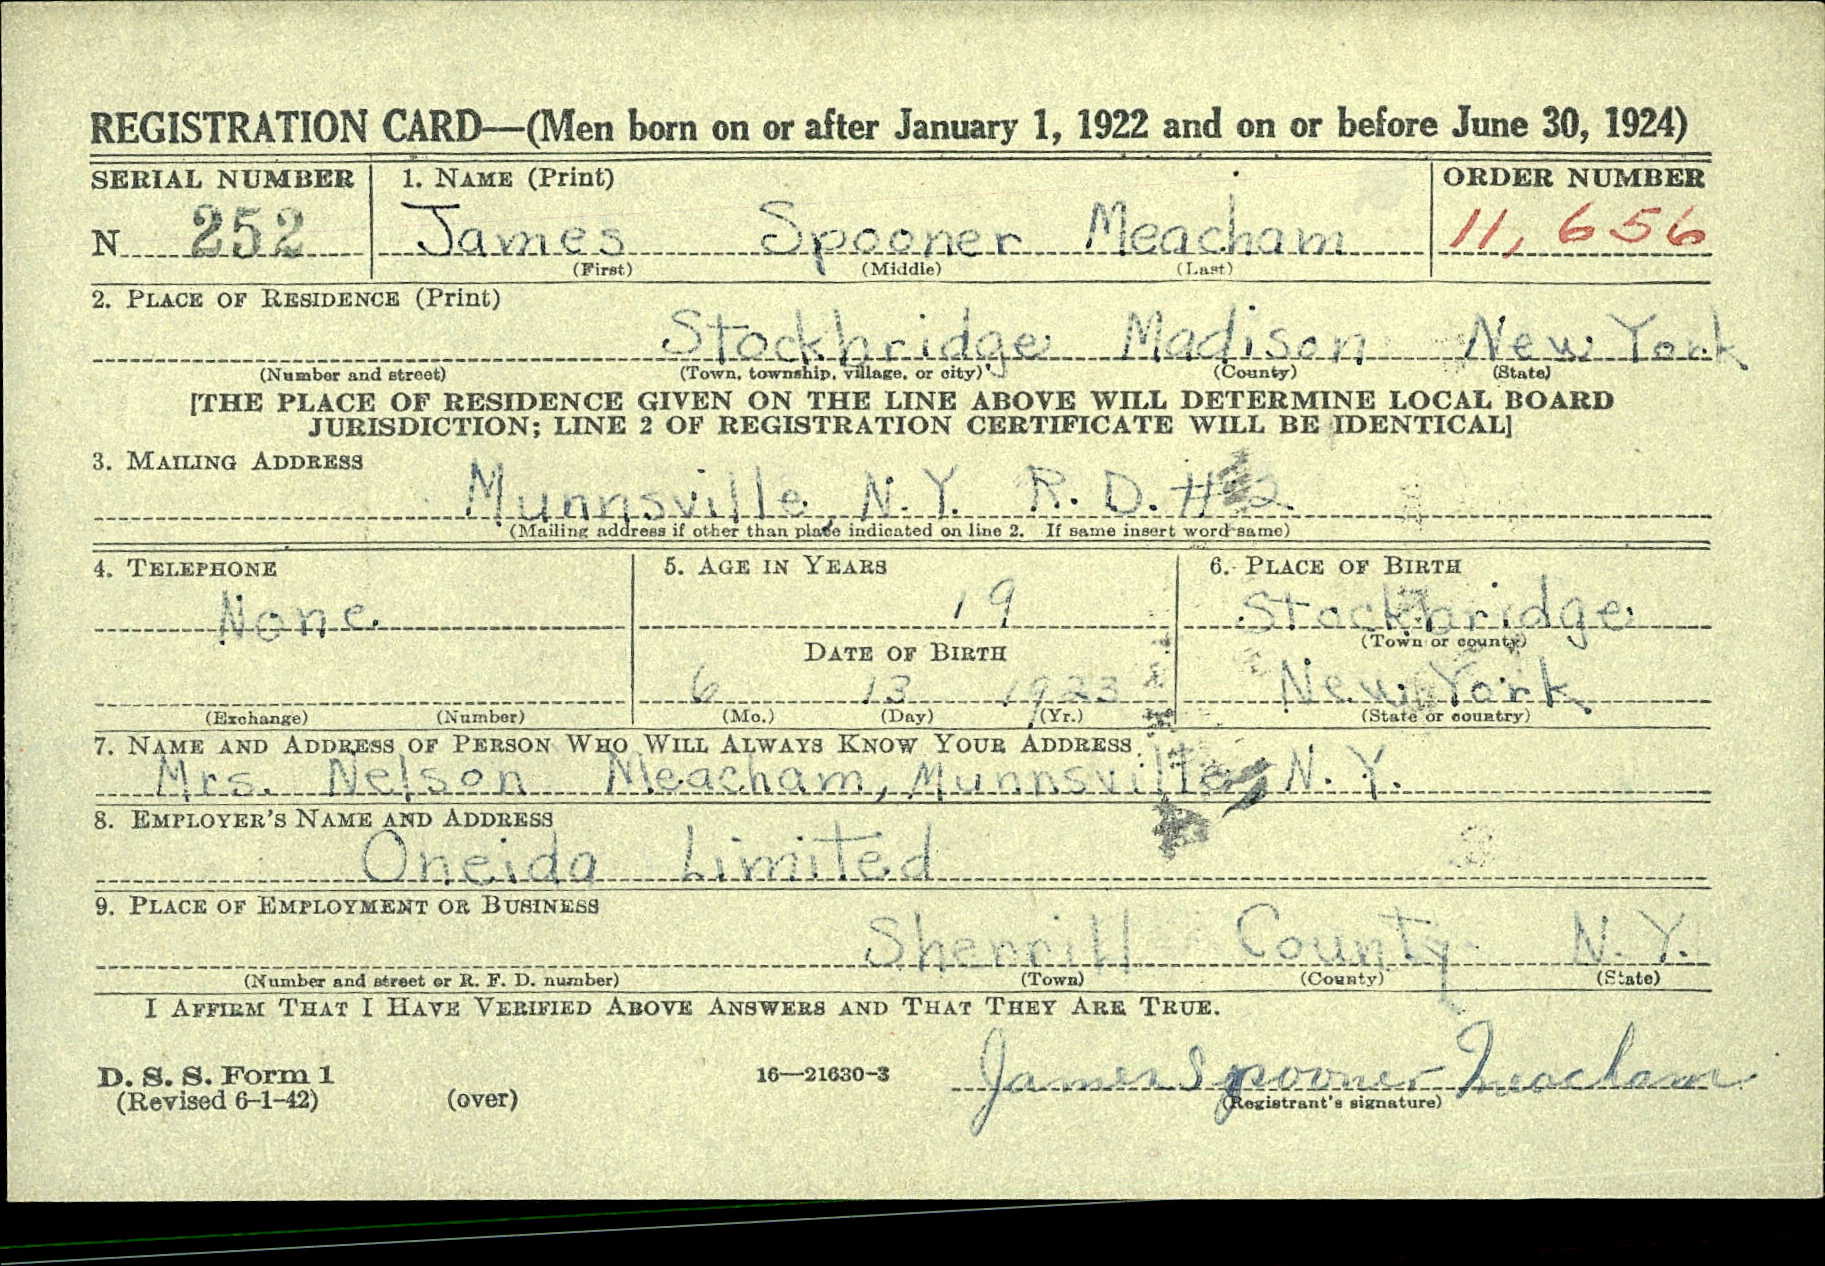 REGISTRATION CARD—(Men born on or after January 1, 1922 and on or before June 30, 1924)
SERIAL NUMBER 1. NAME (Print) ORDER NUMBER
N 252 James Spooner Meacham 11,656
(First) (Middle) (Last)
2. PLACE OF RESIDENCE (Print)
Stockbridge Madison New York
(Number and street) (Town, township, village, or city) (County) (State)
[THE PLACE OF RESIDENCE GIVEN ON THE LINE ABOVE WILL DETERMINE LOCAL BOARD
JURISDICTION; LINE 2 OF REGISTRATION CERTIFICATE WILL BE IDENTICAL]
3. MAILING ADDRESS
Munnsville, N.Y. R.D. #2
(Mailing address if other than place indicated on line 2. If same insert word same)
4. TELEPHONE 5. AGE IN YEARS 6. PLACE OF BIRTH
None 19 Stockbridge
(Town or county)
DATE OF BIRTH
6 13 1923 New York
(Exchange) (Number) (Mo.) (Day) (Yr.) (State or country)
7. NAME AND ADDRESS OF PERSON WHO WILL ALWAYS KNOW YOUR ADDRESS
Mrs. Nelson Meacham, Munnsville, N.Y.
8. EMPLOYER'S NAME AND ADDRESS
Oneida Limited
9. PLACE OF EMPLOYMENT OR BUSINESS
Sherrill County N.Y.
(Number and street or R. F. D. number) (Town) (County) (State)
I AFFIRM THAT I HAVE VERIFIED ABOVE ANSWERS AND THAT THEY ARE TRUE.
D. S. S. Form 1 16—21630-3 James Spooner Meacham
(Revised 6-1-42) (over) (Registrant's signature)